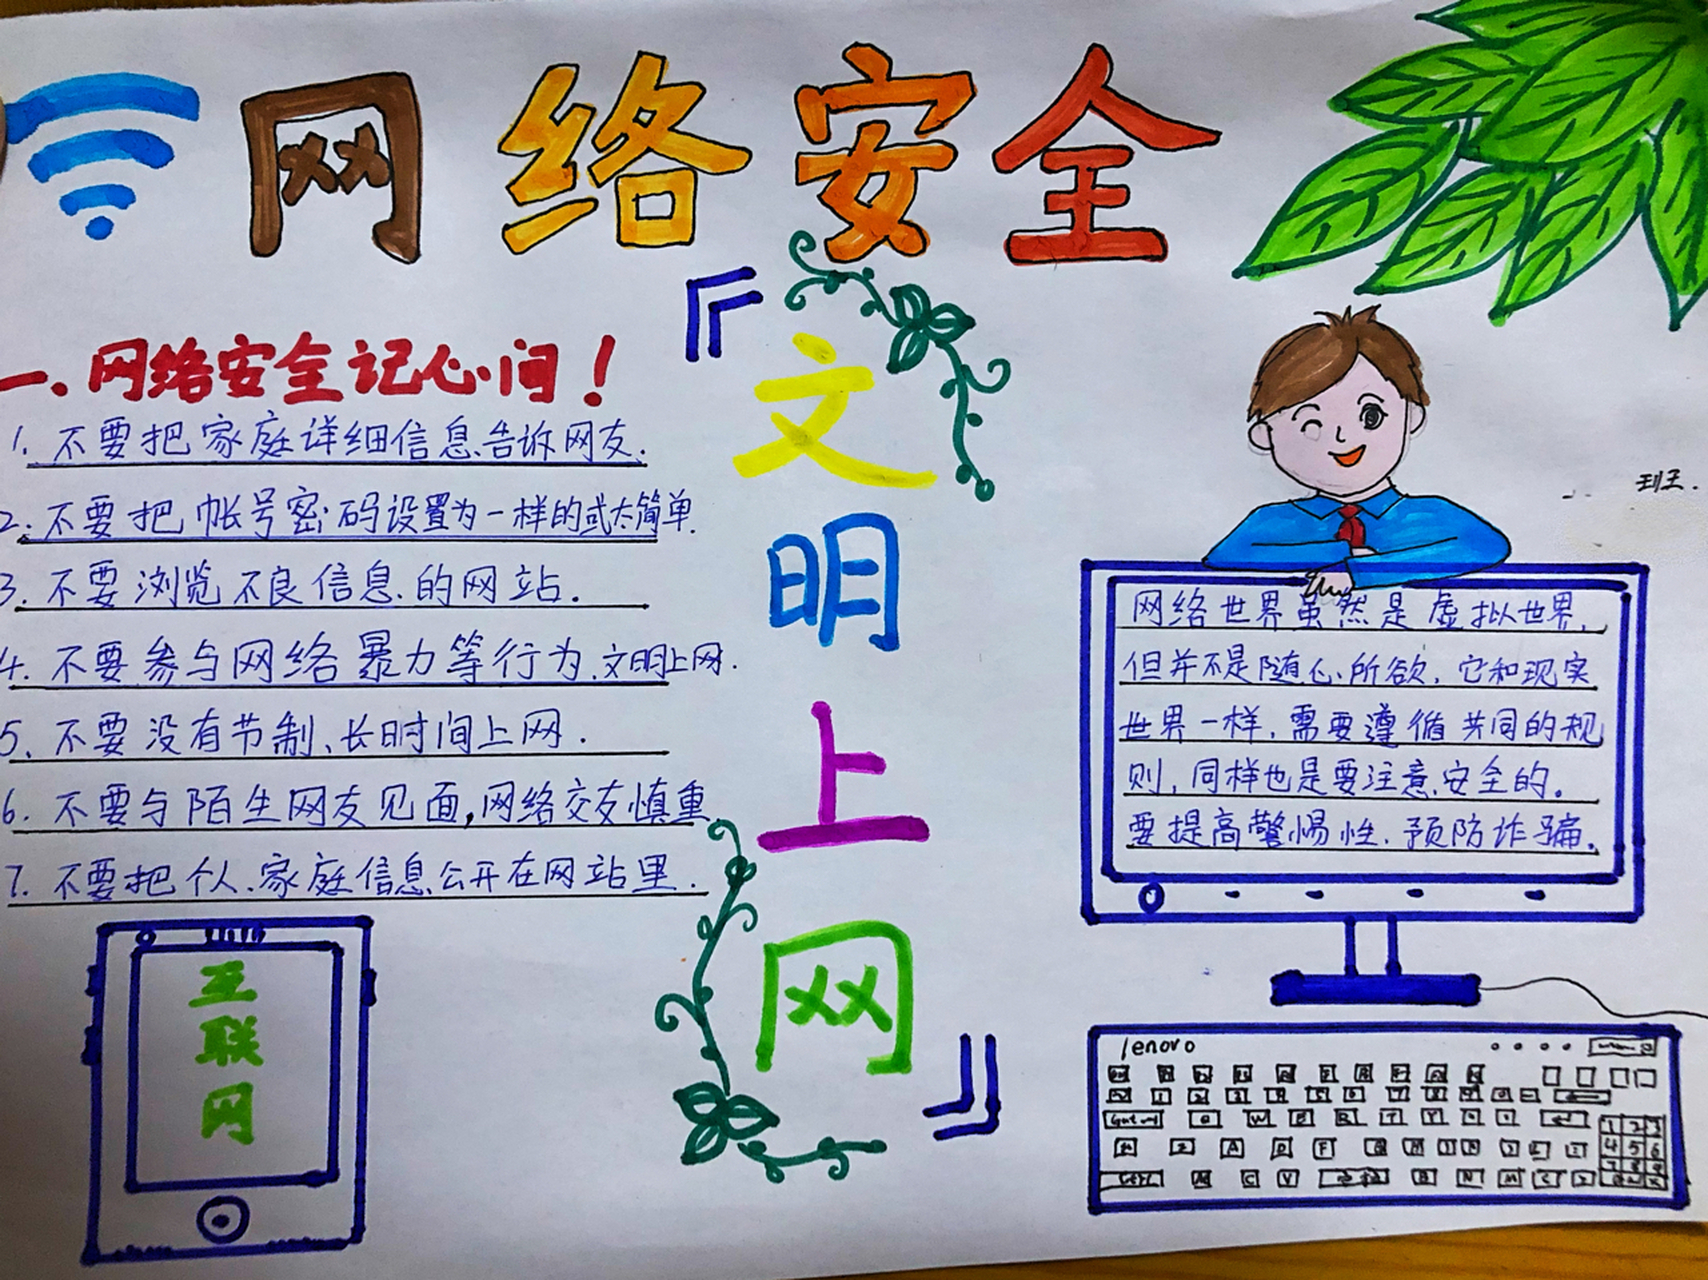 网络安全
『文明上网』
一、网络安全记心间！
1. 不要把家庭详细信息告诉网友.
2. 不要把帐号密码设置为一样的或太简单.
3. 不要浏览不良信息的网站.
4. 不要参与网络暴力等行为.文明上网.
5. 不要没有节制、长时间上网.
6. 不要与陌生网友见面,网络交友慎重.
7. 不要把个人、家庭信息公开在网站里.
互
联
网
网络世界虽然是虚拟世界,
但并不是随心所欲,它和现实
世界一样,需要遵循共同的规
则,同样也是要注意安全的。
要提高警惕性.预防诈骗.
lenovo